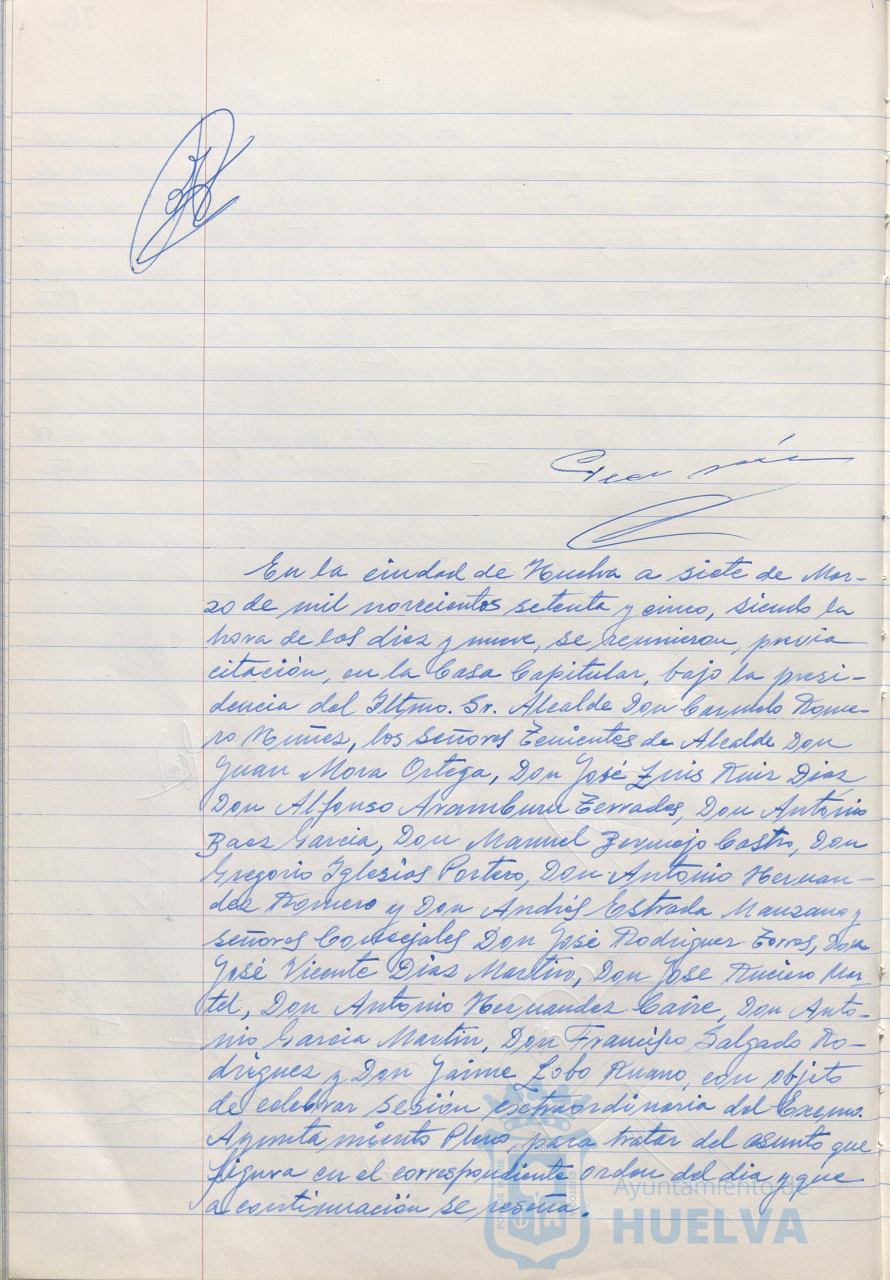 En la ciudad de Huelva a siete de Mar-
zo de mil novecientos setenta y cinco, siendo la
hora de las diez y nueve, se reunieron, previa
citación, en la Casa Capitular, bajo la presi-
dencia del Iltmo. Sr. Alcalde Don Carmelo Rome-
ro Núñez, los señores Tenientes de Alcalde Don
Juan Mora Ortega, Don José Luis Ruiz Díaz
Don Alfonso Aramburu Terrades, Don Antonio
Baez Garcia, Don Manuel Bermejo Castro, Don
Gregorio Iglesias Portero, Don Antonio Hernan-
dez Romero y Don Andrés Estrada Manzano y
señores Concejales Don José Rodriguez Torres, Don
José Vicente Diaz Martin, Don Jose Ruciero Mar-
tel, Don Antonio Hernandez Caire, Don Anto-
nio Garcia Martin, Don Francisco Salgado Ro-
driguez y Don Jaime Lobo Ruano, con objeto
de celebrar sesión extraordinaria del Excmo.
Ayuntamiento Pleno, para tratar del asunto que
figura en el correspondiente orden del dia y que
a continuación se reseña.
Ayuntamiento de
HUELVA